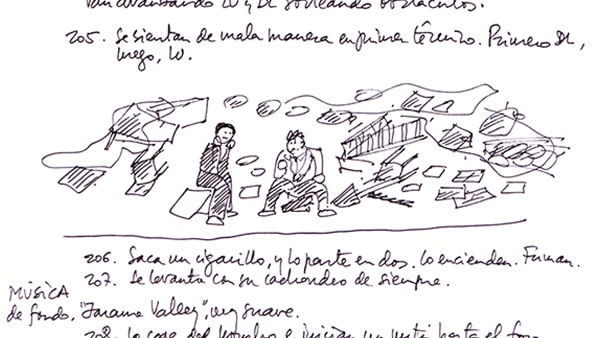 van avanzando W y DL sorteando obstáculos.
205. Se sientan de mala manera en primer término. Primero DL,
luego, W.
206. Saca un cigarillo, y lo parte en dos. Lo encienden. Fuman.
207. Se levanta con su cachondeo de siempre.
MÚSICA
de fondo, "Jarama Valley", muy suave.
208. Lo coge del hombro e inician un